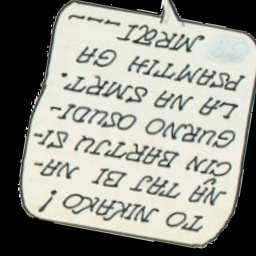 TO NIKAKO!
NA TAJ BI NA-
CIN BARTJU SI-
GURNO OSUDI-
LA NA SMRT.
PSAMTIH GA
MRZI ---